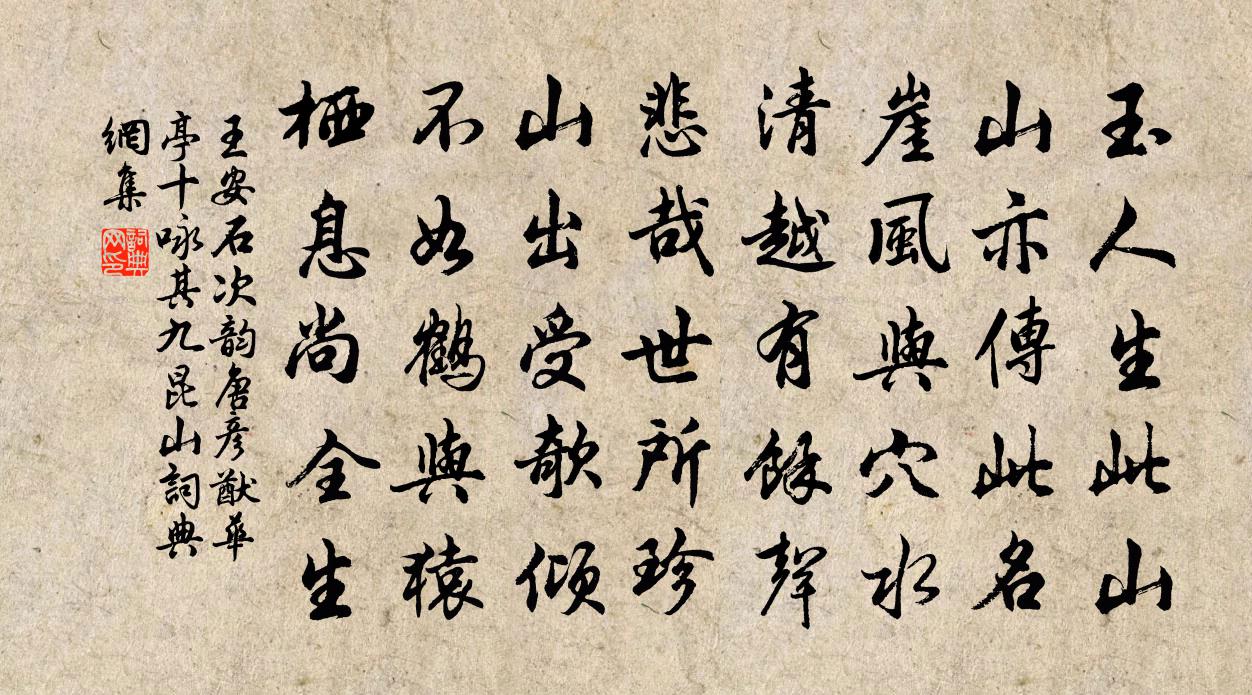 玉人生此山
山亦傳此名
崖風與穴水
清越有餘聲
悲哉世所珍
山出受欹傾
不如鶴與猿
栖息尚全生
王安石次韵唐彦猷華
亭十咏其九昆山詞典
網集
詞典网印